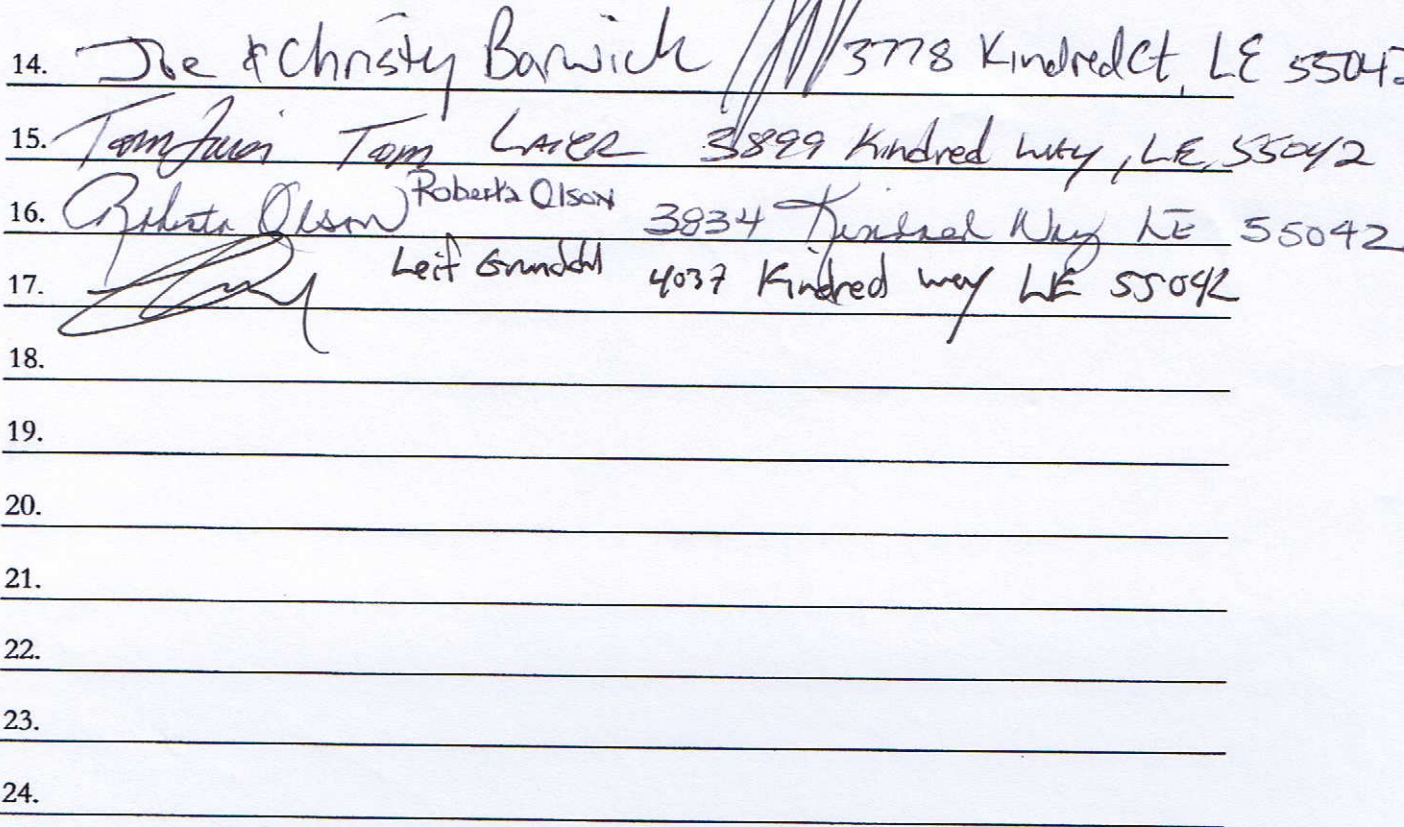 14. Joe & Christy Barwick 3778 Kindred Ct, LE 55042
15. Tom Tom 3899 Kindred Way, LE, 55042
16. Roberta Olson Roberta Olson 3834 Kindred Way LE 55042
17. Leif 4037 Kindred way LE 55042
18.
19.
20.
21.
22.
23.
24.